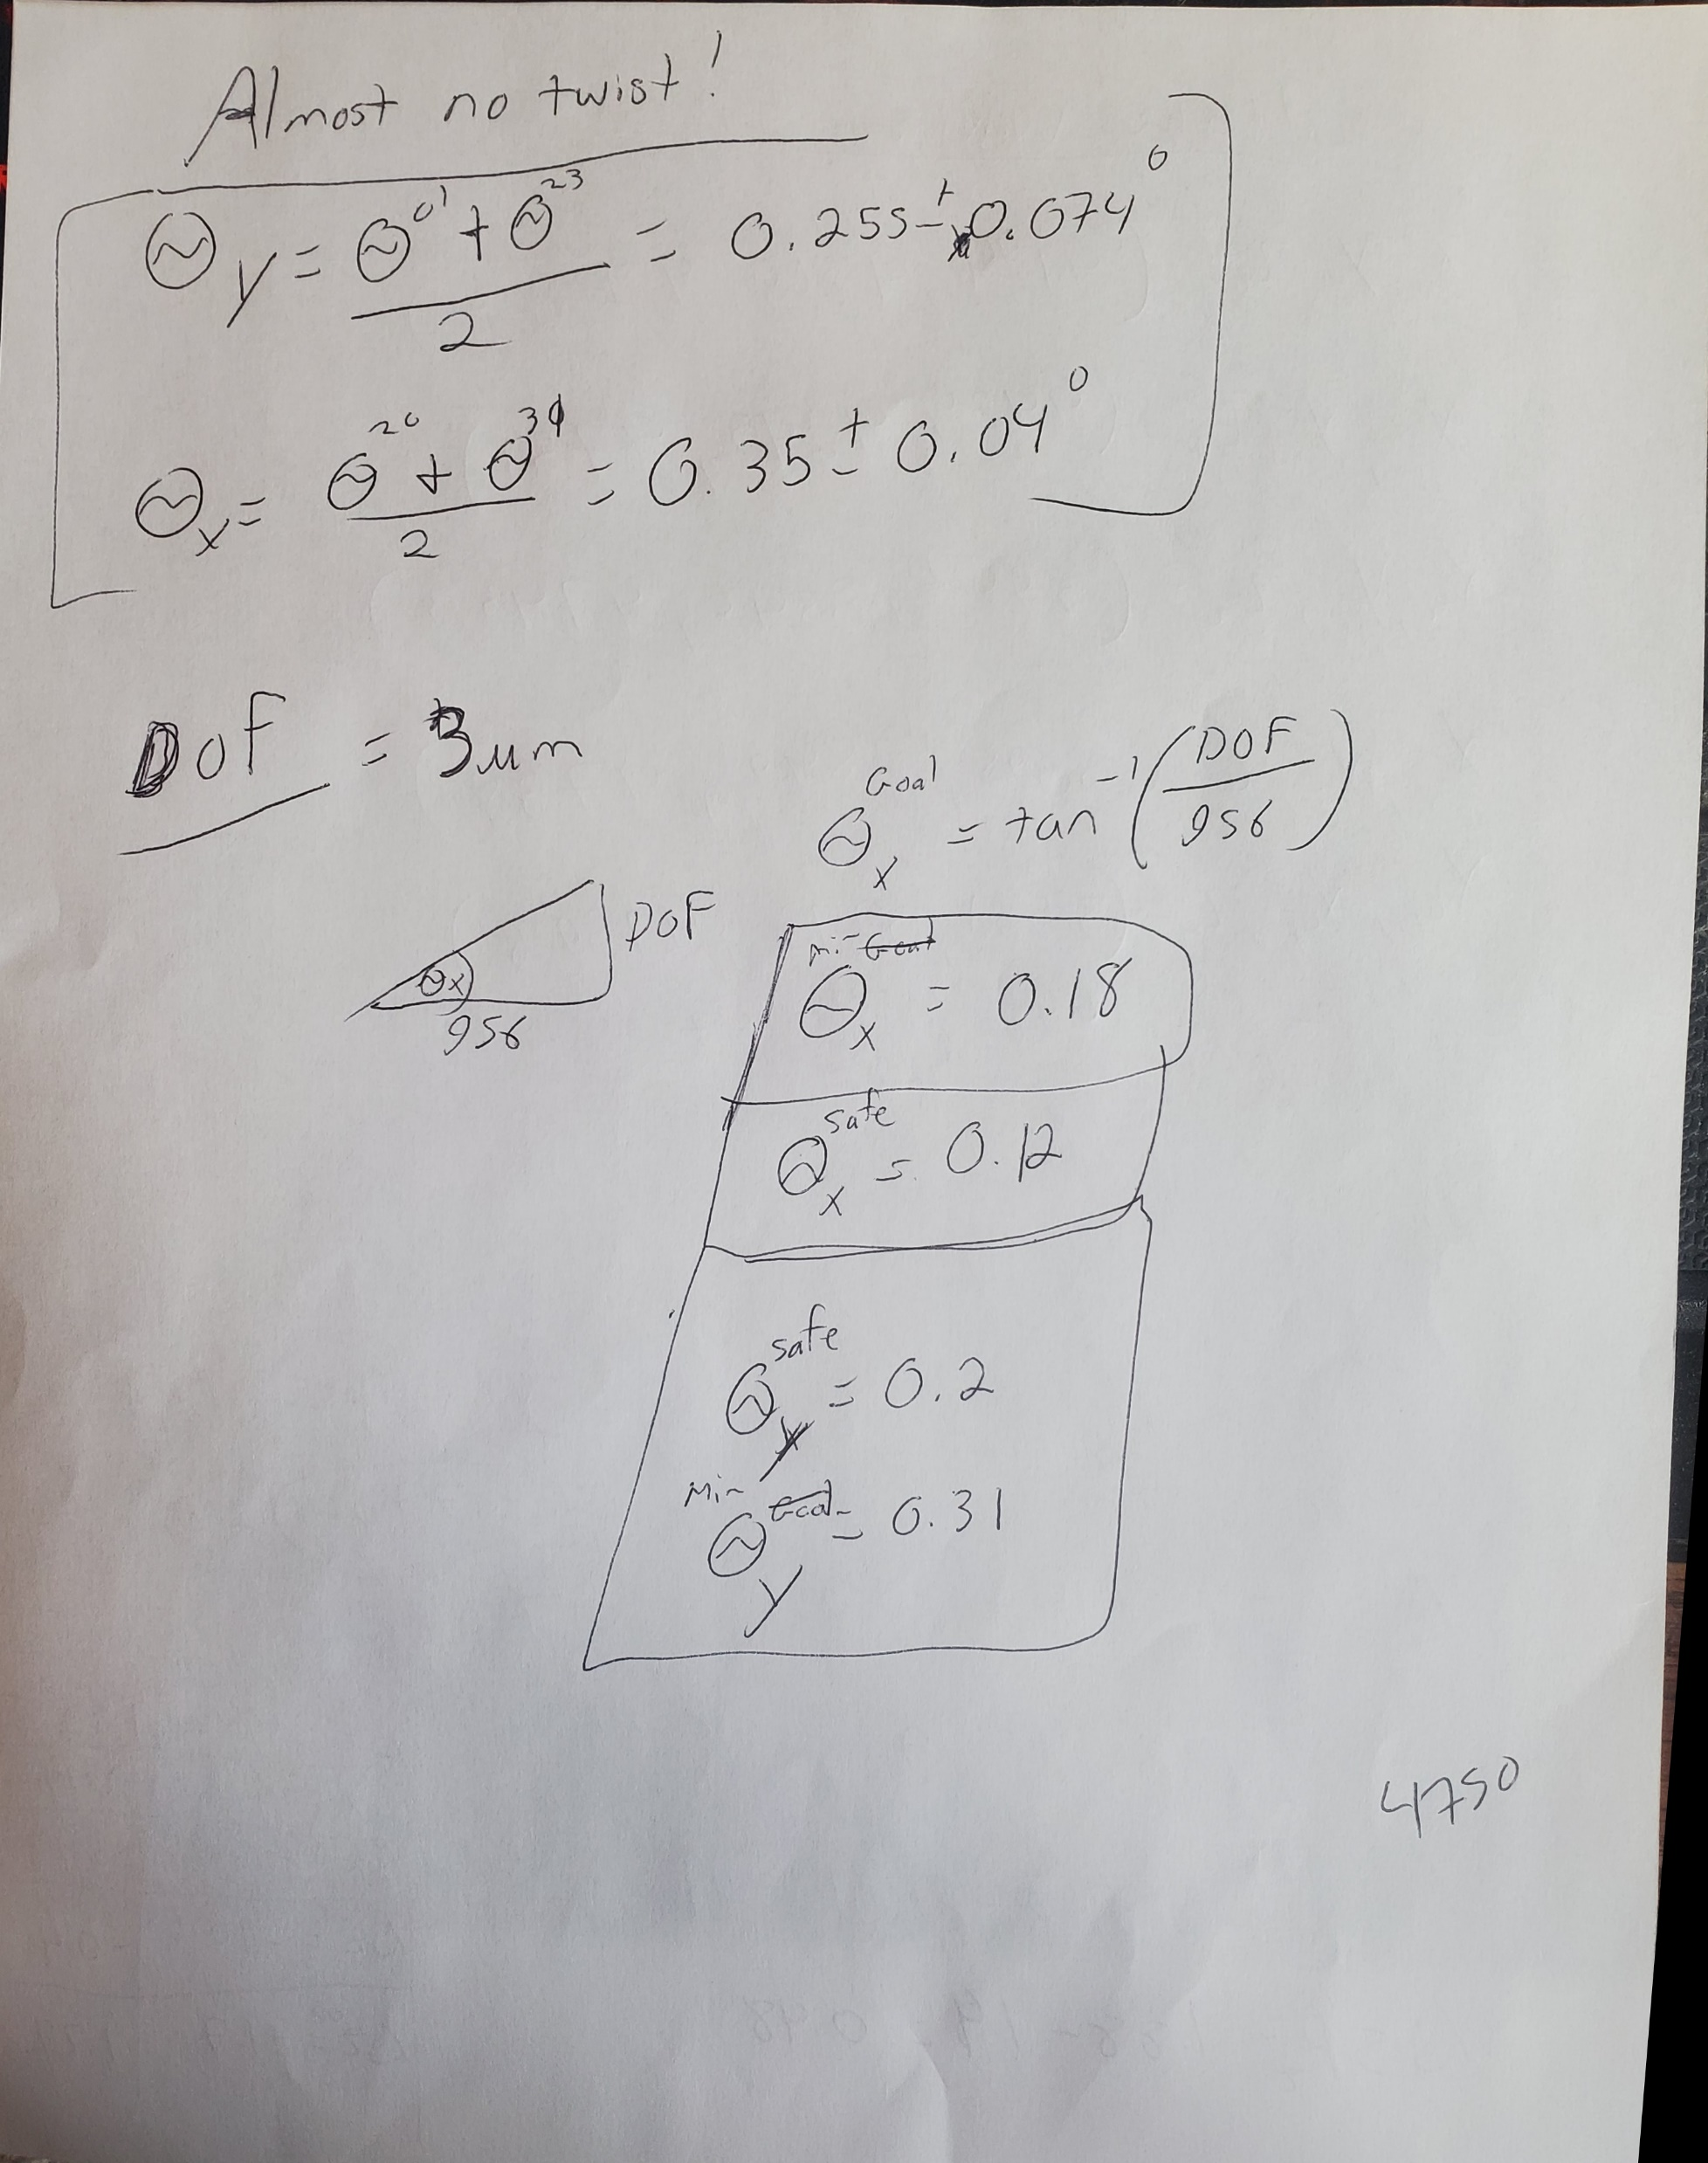 Almost no twist!
Θy = Θ⁰¹ + Θ²³ / 2 = 0.255 ± 0.074°
Θx = Θ²⁰ + Θ³¹ / 2 = 0.35 ± 0.04°
DOF = 3μm
Θx Goal = tan⁻¹(DOF / 956)
DOF
Θx
956
Θx min Goal = 0.18
Θx safe = 0.12
Θy safe = 0.2
Θy Min Goal = 0.31
4750